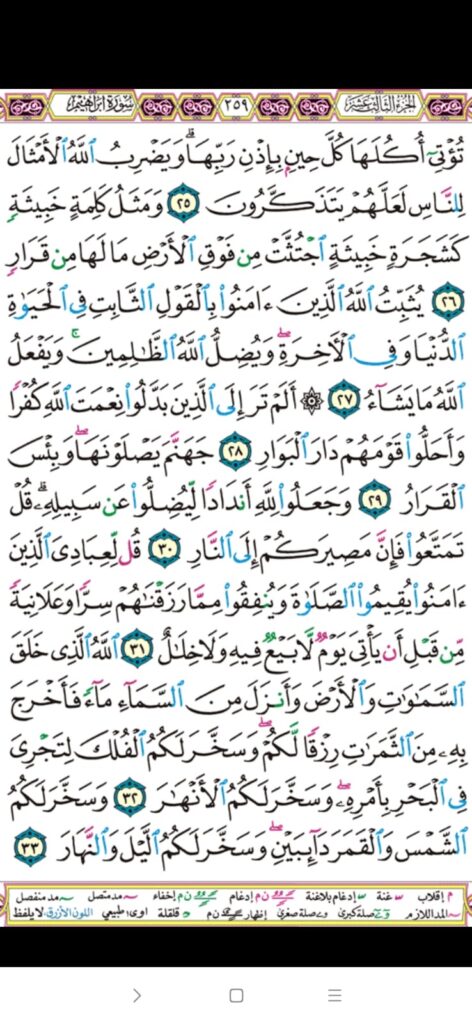 الجزء الثالث عشر ٢٥٩ سورة إبراهيم
تُؤْتِىٓ أُكُلَهَا كُلَّ حِينٍۭ بِإِذْنِ رَبِّهَاۗ وَيَضْرِبُ ٱللَّهُ ٱلْأَمْثَالَ
لِلنَّاسِ لَعَلَّهُمْ يَتَذَكَّرُونَ ٢٥ وَمَثَلُ كَلِمَةٍ خَبِيثَةٍ
كَشَجَرَةٍ خَبِيثَةٍ ٱجْتُثَّتْ مِن فَوْقِ ٱلْأَرْضِ مَا لَهَا مِن قَرَارٍ
٢٦ يُثَبِّتُ ٱللَّهُ ٱلَّذِينَ ءَامَنُوا۟ بِٱلْقَوْلِ ٱلثَّابِتِ فِى ٱلْحَيَوٰةِ
ٱلدُّنْيَا وَفِى ٱلْأَخِرَةِۖ وَيُضِلُّ ٱللَّهُ ٱلظَّـٰلِمِينَۚ وَيَفْعَلُ
ٱللَّهُ مَا يَشَآءُ ٢٧ ۞ أَلَمْ تَرَ إِلَى ٱلَّذِينَ بَدَّلُوا۟ نِعْمَتَ ٱللَّهِ كُفْرًا
وَأَحَلُّوا۟ قَوْمَهُمْ دَارَ ٱلْبَوَارِ ٢٨ جَهَنَّمَ يَصْلَوْنَهَاۖ وَبِئْسَ
ٱلْقَرَارُ ٢٩ وَجَعَلُوا۟ لِلَّهِ أَندَادًا لِّيُضِلُّوا۟ عَن سَبِيلِهِۦۗ قُلْ
تَمَتَّعُوا۟ فَإِنَّ مَصِيرَكُمْ إِلَى ٱلنَّارِ ٣٠ قُل لِّعِبَادِىَ ٱلَّذِينَ
ءَامَنُوا۟ يُقِيمُوا۟ ٱلصَّلَوٰةَ وَيُنفِقُوا۟ مِمَّا رَزَقْنَـٰهُمْ سِرًّا وَعَلَانِيَةً
مِّن قَبْلِ أَن يَأْتِىَ يَوْمٌ لَّا بَيْعٌ فِيهِ وَلَا خِلَـٰلٌ ٣١ ٱللَّهُ ٱلَّذِى خَلَقَ
ٱلسَّمَـٰوَٰتِ وَٱلْأَرْضَ وَأَنزَلَ مِنَ ٱلسَّمَآءِ مَآءً فَأَخْرَجَ
بِهِۦ مِنَ ٱلثَّمَرَٰتِ رِزْقًا لَّكُمْۖ وَسَخَّرَ لَكُمُ ٱلْفُلْكَ لِتَجْرِىَ
فِى ٱلْبَحْرِ بِأَمْرِهِۦۖ وَسَخَّرَ لَكُمُ ٱلْأَنْهَـٰرَ ٣٢ وَسَخَّرَ لَكُمُ
ٱلشَّمْسَ وَٱلْقَمَرَ دَآئِبَيْنِۖ وَسَخَّرَ لَكُمُ ٱلَّيْلَ وَٱلنَّهَارَ ٣٣
م إقلاب غنة إدغام بلاغنة ن م إدغام ن إخفاء مد متصل مد منفصل
المد اللازم صلة كبرى صلة صغرى إظهار ن م قلقلة اوى طبيعي اللون الأزرق لا يلفظ